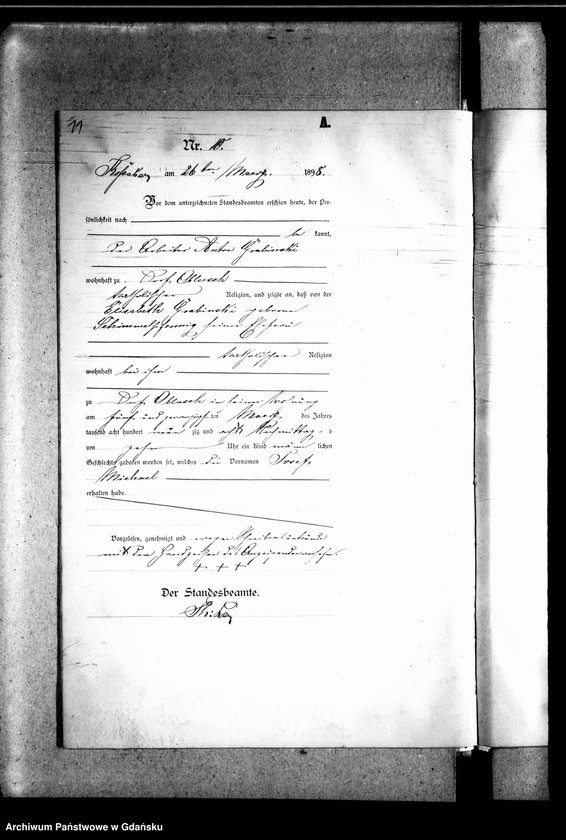 11
A.
Nr. 10.
am 26ten Maerz. 1898.
Vor dem unterzeichneten Standesbeamten erschien heute, der Per-
sönlichkeit nach
be kannt,
der Arbeiter Anton Grabinski
wohnhaft zu Dorf Oblusch
katholischer Religion, und zeigte an, daß von der
Elisabeth Grabinski geborene
Schimmelpfennig seiner Ehefrau
katholischer Religion
wohnhaft bei ihm
zu Dorf Oblusch in seiner Wohnung
am fünf und zwanzigsten Maerz des Jahres
tausend acht hundert neun zig und acht Nachmittag s
um zehn Uhr ein Kind männ lichen
Geschlechts geboren worden sei, welches die Vornamen Josef,
Michael
erhalten habe.
Vorgelesen, genehmigt und wegen Schreibensunkunde
mit dem Handzeichen des Anzeigenden versehen.
+ + +
Der Standesbeamte.
Archiwum Państwowe w Gdańsku